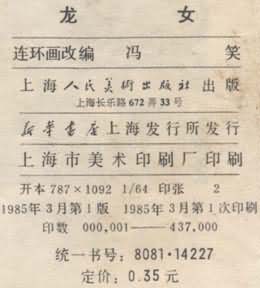 龙女
连环画改编 冯笑
上海人民美術出版社出版
上海长乐路672弄33号
新华書店上海发行所发行
上海市美术印刷厂印刷
开本787×1092 1/64 印张 2
1985年3月第1版 1985年3月第1次印刷
印数 000,001——437,000
统一书号：8081·14227
定价：0.35元